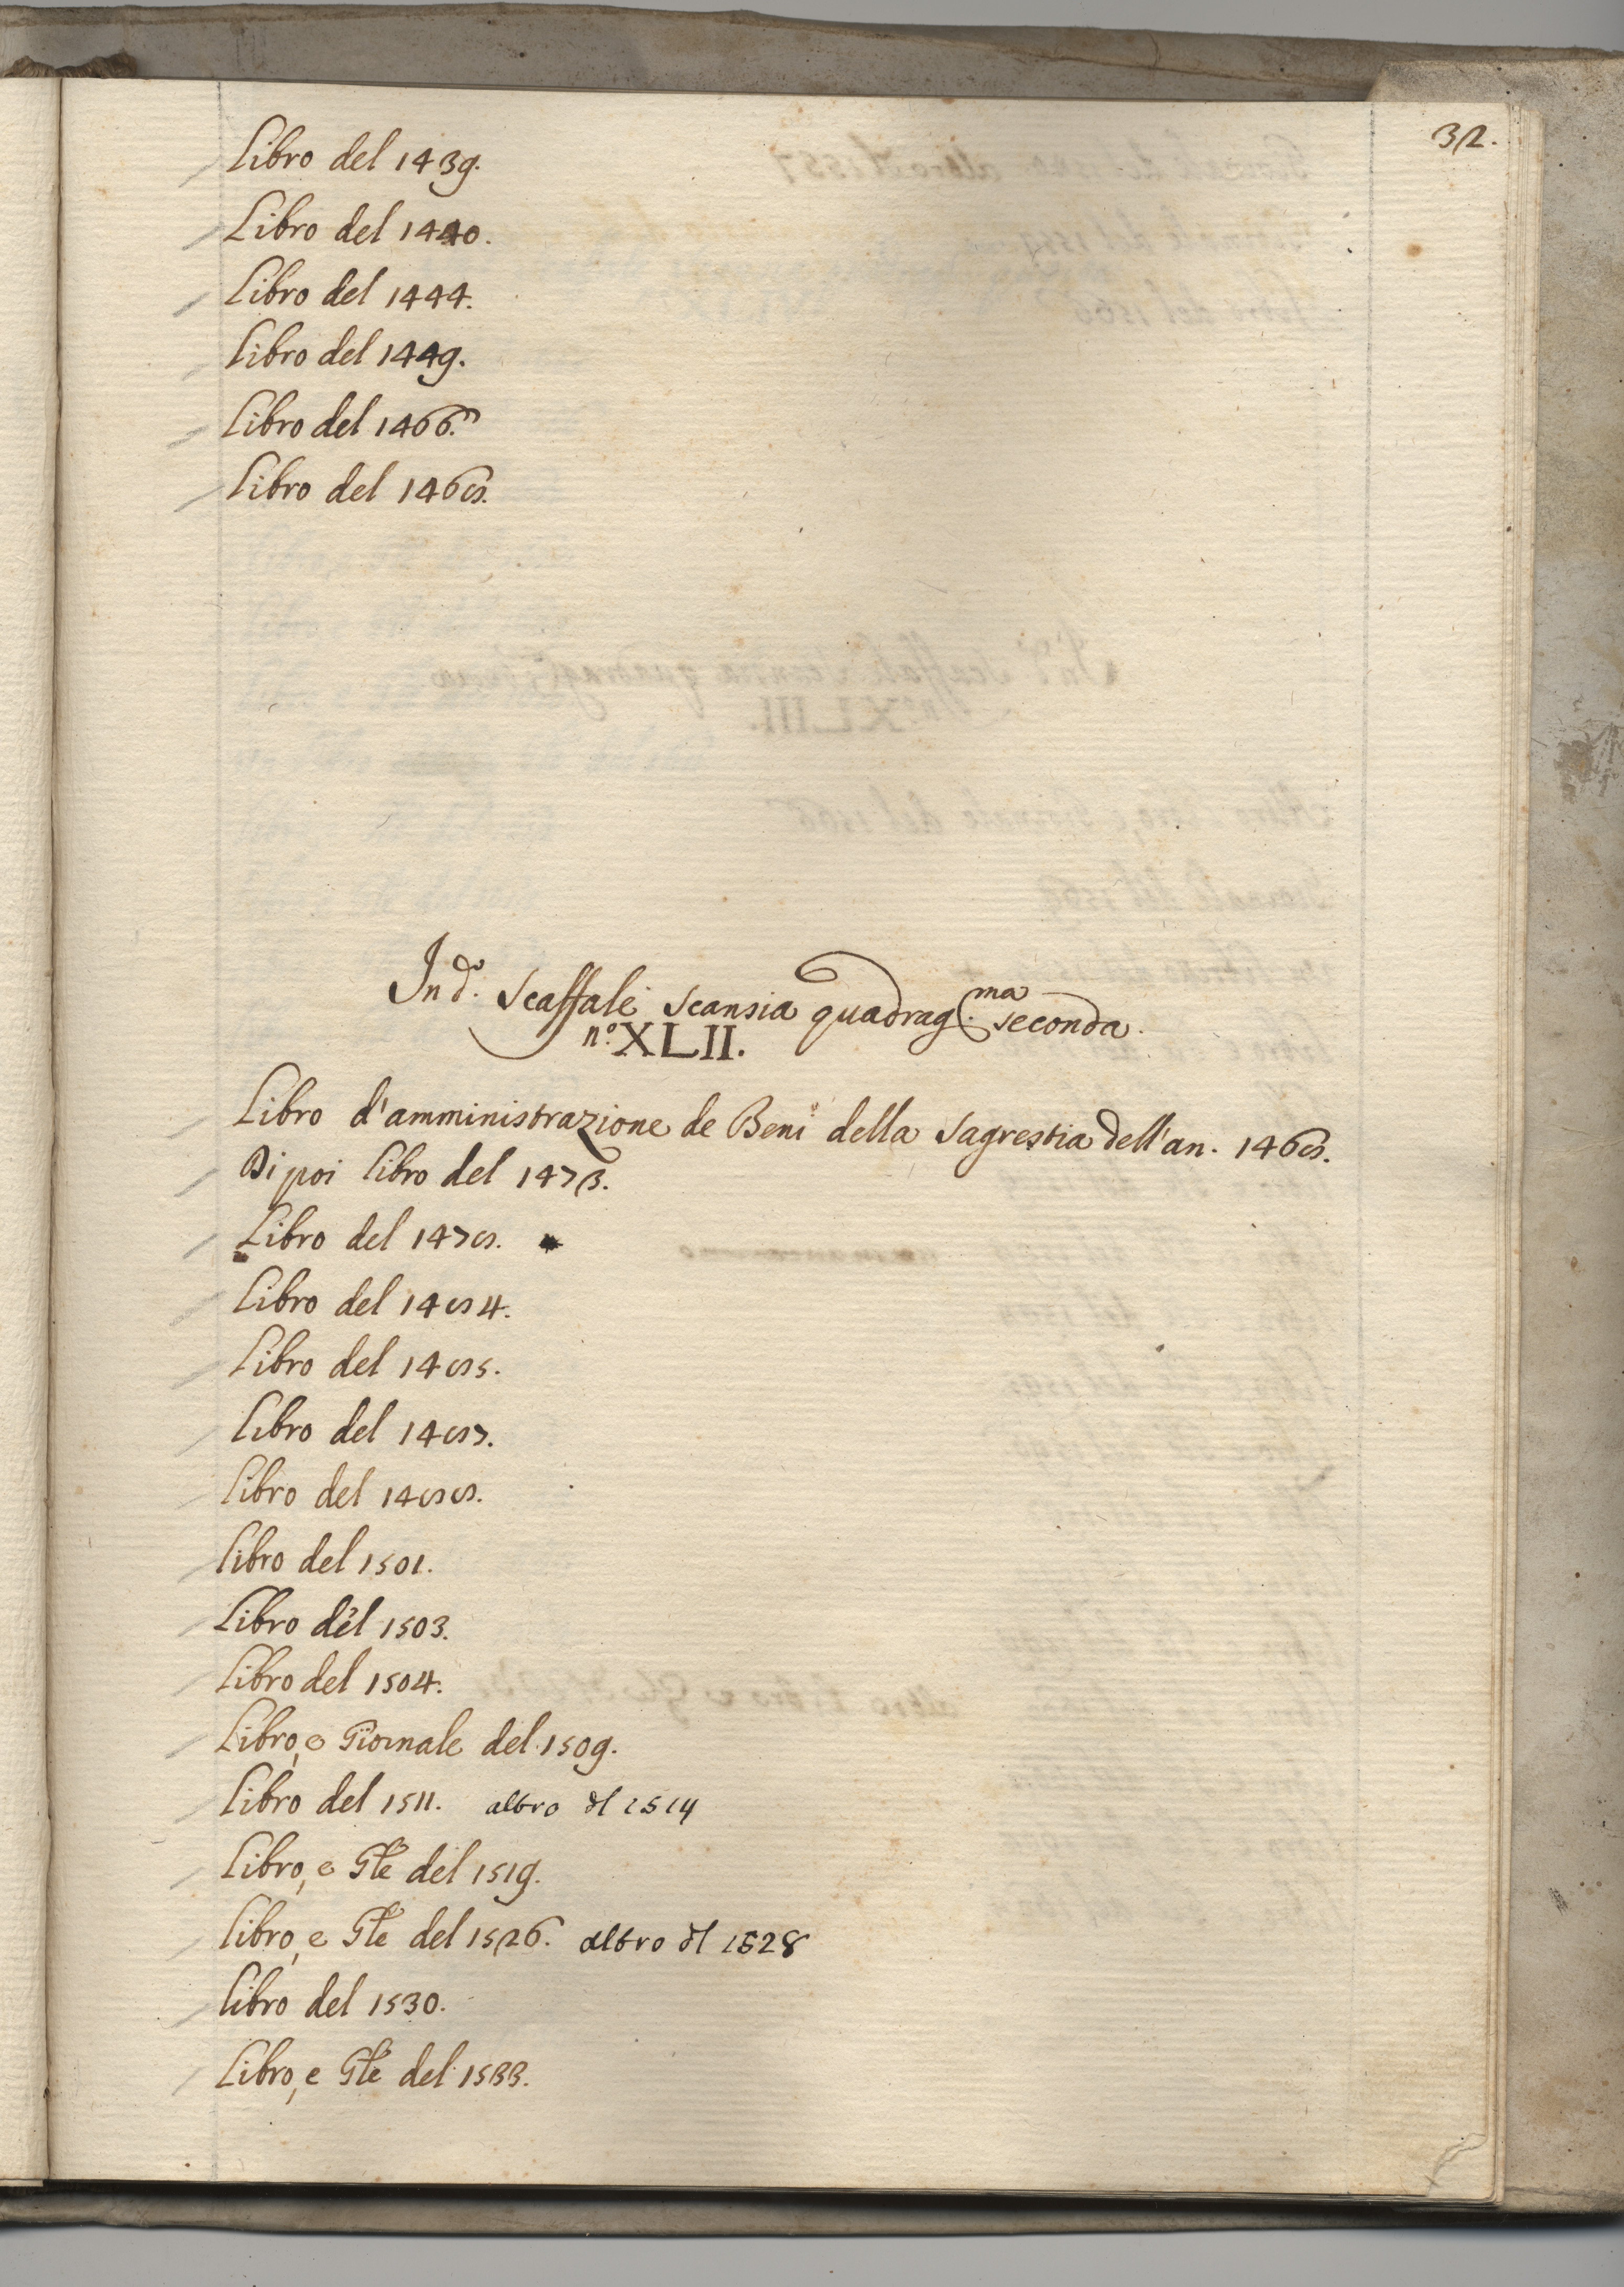 32.
Libro del 1439.
Libro del 1440.
Libro del 1444.
Libro del 1449.
Libro del 1466.
Libro del 1468.
In d.º Scaffale Scansia quadrag.ma seconda.
n.º XLII.
Libro d'amministrazione de Beni della Sagrestia dell'an. 1468.
Di poi libro del 1473.
Libro del 1478.
Libro del 1484.
Libro del 1485.
Libro del 1487.
Libro del 1488.
Libro del 1501.
Libro del 1503.
Libro del 1504.
Libro, e Giornale del 1509.
Libro del 1511. altro dl 1514
Libro, e Gle del 1519.
Libro, e Gle del 1526. altro dl 1528
Libro del 1530.
Libro, e Gle del 1533.